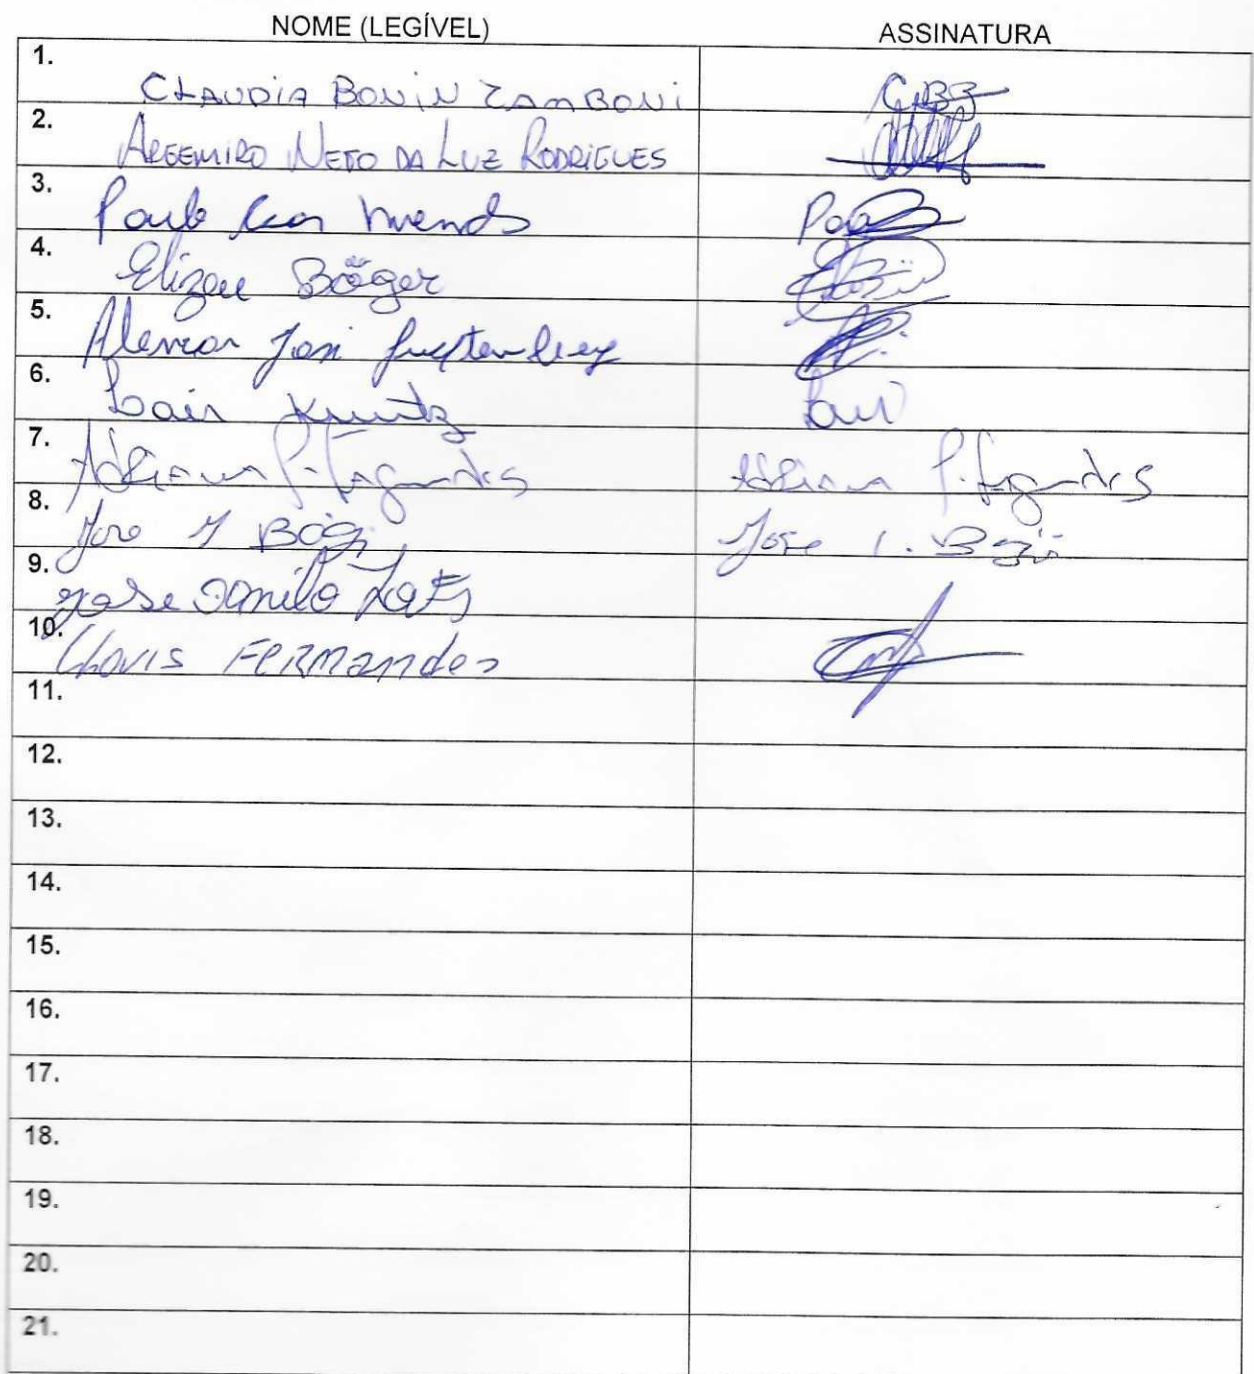 NOME (LEGÍVEL) ASSINATURA
1. CLAUDIA BONIN ZAMBONI CBZ
2. ARGEMIRO NETO DA LUZ RODRIGUES
3. Paulo Cesar Mends
4. Elizeu Böger
5. Alencar José
6. Loair Kuntz
7. Adriana P. Fagundes Adriana P. Fagundes
8. Jose I Böger Jose I. Böger
9. Jose Danilo
10. Clovis FERnandes
11.
12.
13.
14.
15.
16.
17.
18.
19.
20.
21.